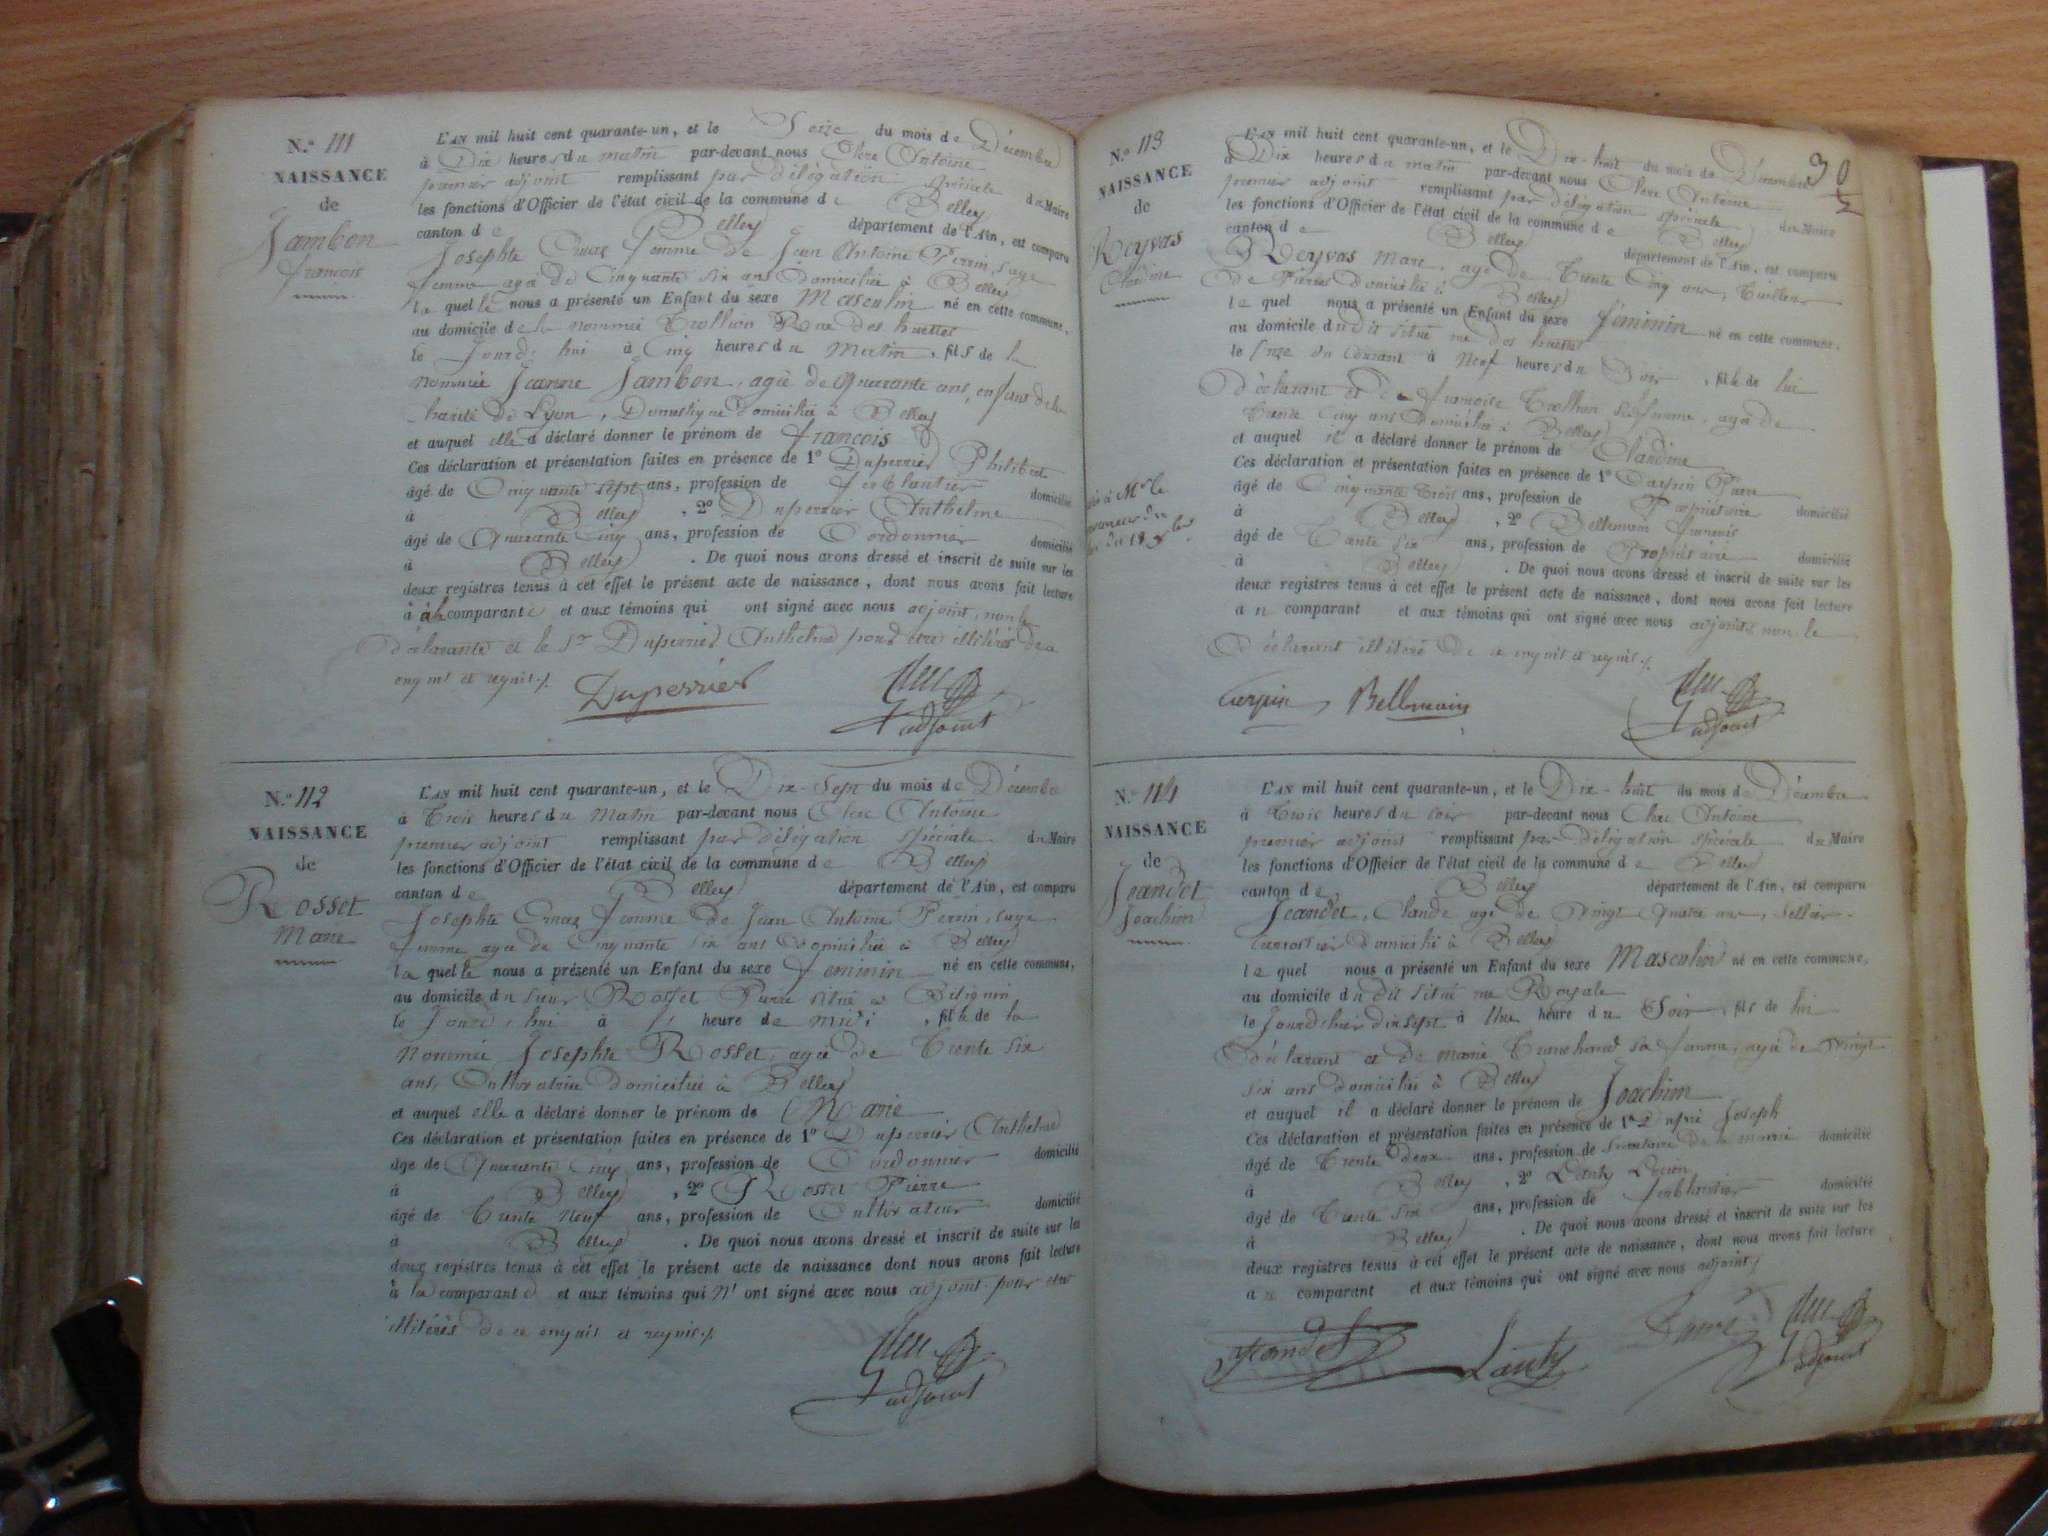 N.° 111
NAISSANCE
de
Jambon
françois
L'AN mil huit cent quarante-un, et le Seize du mois de Décembre
à Dix heures du matin par-devant nous Clerc Antoine
premier adjoint remplissant par délégation spéciale du Maire
les fonctions d'Officier de l'état civil de la commune de Belley
canton de Belley département de l'Ain, est comparu
Josephte femme de Jean Antoine Perrin, sage
femme agée de Cinquante six ans Domiciliée à Belley
laquelle nous a présenté un Enfant du sexe Masculin né en cette commune,
au domicile de la nommée Trollion Rue des
le Jourd'hui à Cinq heures du Matin, fils de la
nommée Jeanne Jambon, agée de Quarante ans, enfant de la
charité de Lyon, Domestique domiciliée à Belley
et auquel elle a déclaré donner le prénom de françois
Ces déclaration et présentation faites en présence de 1° Duperrier Philibert
âgé de Cinquante sept ans, profession de ferblantier domicilié
à Belley, 2° Duperrier Anthelme
âgé de Quarante Cinq ans, profession de Cordonnier domicilié
à Belley. De quoi nous avons dressé et inscrit de suite sur les
deux registres tenus à cet effet le présent acte de naissance, dont nous avons fait lecture
à la comparante et aux témoins qui ont signé avec nous adjoint, non la
déclarante et le Sr Duperrier Anthelme pour être illitérés de ce
enquis et requis ./.
Duperrier Clerc
adjoint
N.° 112
NAISSANCE
de
Rosset
Marie
L'AN mil huit cent quarante-un, et le Dix-Sept du mois de Décembre
à Trois heures du Matin par-devant nous Clerc Antoine
premier adjoint remplissant par délégation spéciale du Maire
les fonctions d'Officier de l'état civil de la commune de Belley
canton de Belley département de l'Ain, est comparu
Josephte femme de Jean Antoine Perrin, sage
femme agée de Cinquante six ans Domiciliée à Belley
laquelle nous a présenté un Enfant du sexe féminin né en cette commune,
au domicile du sieur Rosset Pierre situé à Bilignin
le Jourd'hui à heure de midi, fille de la
nommée Josephte Rosset, agée de Trente six
ans, Cultivatrice domiciliée à Belley
et auquel elle a déclaré donner le prénom de Marie
Ces déclaration et présentation faites en présence de 1° Duperrier Anthelme
âgé de Quarante Cinq ans, profession de Cordonnier domicilié
à Belley, 2° Rosset Pierre
âgé de Trente Neuf ans, profession de Cultivateur domicilié
à Belley. De quoi nous avons dressé et inscrit de suite sur les
deux registres tenus à cet effet le présent acte de naissance dont nous avons fait lecture
à la comparante et aux témoins qui n'ont signé avec nous adjoint pour être
illitérés de ce enquis et requis ./.
Clerc
adjoint
30
N.° 113
NAISSANCE
de
Reyvas
Claudine
L'AN mil huit cent quarante-un, et le Dix-huit du mois de Décembre
à Dix heures du matin par-devant nous Clerc Antoine
premier adjoint remplissant par délégation spéciale du Maire
les fonctions d'Officier de l'état civil de la commune de Belley
canton de Belley département de l'Ain, est comparu
Reyvas Marc, agé de Trente Cinq ans, Tailleur
de Pierres domicilié à Belley
lequel nous a présenté un Enfant du sexe féminin né en cette commune,
au domicile du dit situé rue des
le Onze du Courant à Neuf heures du Soir, fille de lui
déclarant et de françoise sa femme, agée de
Trente Cinq ans domiciliée à Belley
et auquel il a déclaré donner le prénom de Claudine
Ces déclaration et présentation faites en présence de 1°
âgé de Cinquante Trois ans, profession de Propriétaire domicilié
à Belley, 2° Bellemain françois
âgé de Trente Six ans, profession de Propriétaire domicilié
à Belley. De quoi nous avons dressé et inscrit de suite sur les
deux registres tenus à cet effet le présent acte de naissance, dont nous avons fait lecture
au comparant et aux témoins qui ont signé avec nous adjoint, non le
Déclarant illitéré de ce enquis et requis ./.
Bellemain Clerc
adjoint
N.° 114
NAISSANCE
de
Jeandet
Joachim
L'AN mil huit cent quarante-un, et le Dix-huit du mois de Décembre
à Trois heures du soir par-devant nous Clerc Antoine
premier adjoint remplissant par délégation spéciale du Maire
les fonctions d'Officier de l'état civil de la commune de Belley
canton de Belley département de l'Ain, est comparu
Jeandet, Claude agé de Vingt quatre ans, Sellier
Carrossier domicilié à Belley
lequel nous a présenté un Enfant du sexe Masculin né en cette commune,
au domicile du dit situé rue Royale
le dix sept à Une heure du Soir, fils de lui
déclarant et de Marie sa femme, agée de Vingt
six ans domiciliée à Belley
et auquel il a déclaré donner le prénom de Joachim
Ces déclaration et présentation faites en présence de 1° Joseph
âgé de Trente deux ans, profession de Secrétaire de la mairie domicilié
à Belley, 2° Lantz
âgé de Trente Six ans, profession de ferblantier domicilié
à Belley. De quoi nous avons dressé et inscrit de suite sur les
deux registres tenus à cet effet le présent acte de naissance, dont nous avons fait lecture
au comparant et aux témoins qui ont signé avec nous adjoint ./.
Jeandet Lantz Clerc
adjoint